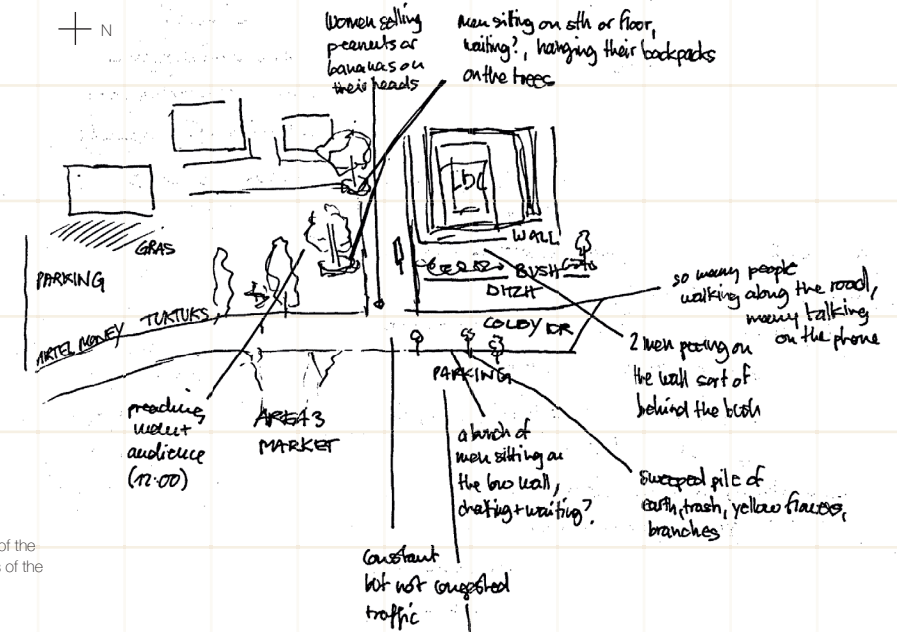 N
Women selling
peanuts or
bananas on
their heads
men sitting on sth or floor,
waiting?, hanging their backpacks
on the trees
LDC
WALL
BUSH
DITZH
GRAS
PARKING
TUKTUKS
AIRTEL MONEY
COLBY DR
PARKING
AREA 3
MARKET
so many people
walking along the road,
many talking
on the phone
2 men peeing on
the wall sort of
behind the bush
preaching
audience
(12:00)
a bunch of
men sitting on
the low wall,
chating + waiting?
sweeped pile of
earth, trash, yellow flowers,
branches
constant
but not congested
traffic
of the
s of the